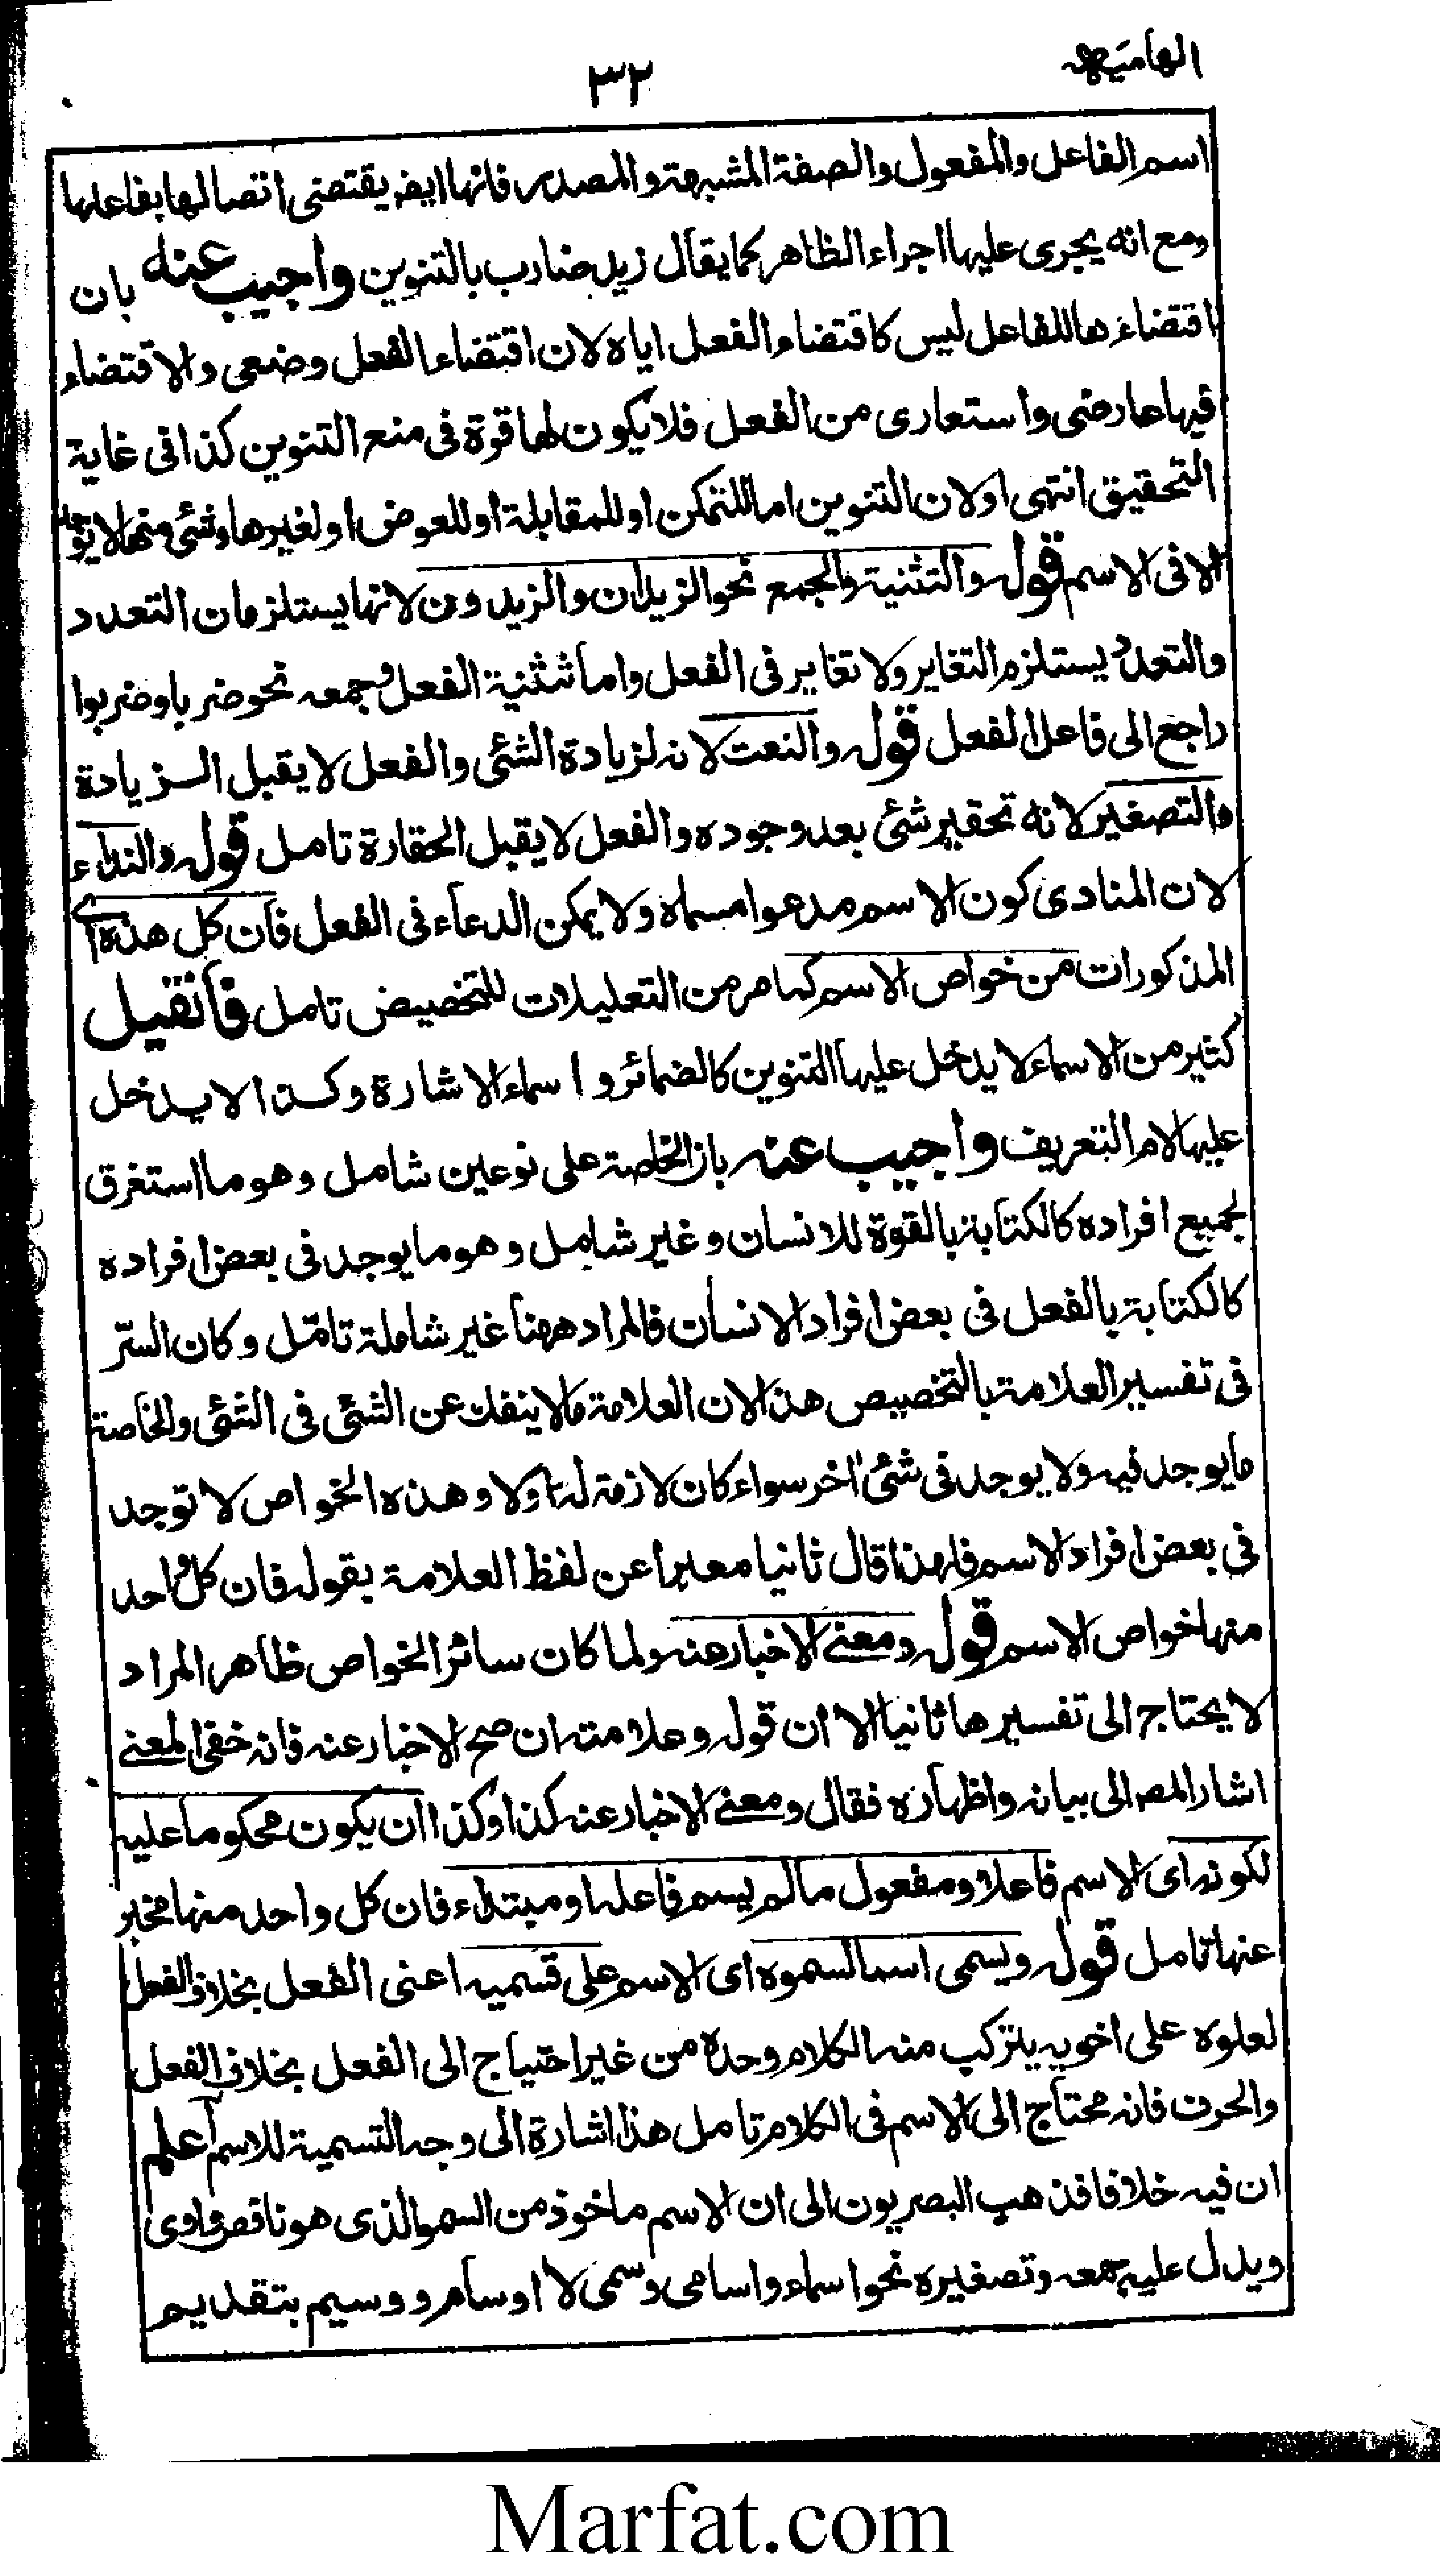 الهامیہ
٣٢
اسم الفاعل والمفعول والصفة المشبهة والمصدر فانها ايض يقتضى اتصالها بفاعلها
ومع انه يجرى عليها اجراء الظاهر كما يقال زيد ضارب بالتنوين واجيب عنه بان
اقتضاءها للفاعل ليس كاقتضاء الفعل اياه لان اقتضاء الفعل وضعى والاقتضاء
فيها عارضى واستعارى من الفعل فلا يكون لها قوة فى منع التنوين كذا فى غاية
التحقيق انتهى اولان التنوين اما للتمكن او للمقابلة او للعوض او لغيرها وشئ منها لا يوجد
الا فى الاسم قوله والتثنية والجمع نحو الزيدان والزيدون لانها يستلزمان التعدد
والتعدد يستلزم التغاير ولا تغاير فى الفعل واما تثنية الفعل وجمعه نحو ضربا وضربوا
راجع الى فاعل الفعل قوله والنعت لانه لزيادة الشئ والفعل لا يقبل الزيادة
والتصغير لانه تحقير شئ بعد وجوده والفعل لا يقبل الحقارة تامل قوله والنداء
لان المنادى كون الاسم مدعوا مسماه ولا يمكن الدعاء فى الفعل فان كل هذه اى
المذكورات من خواص الاسم كما مر من التعليلات للتخصيص تامل فان قيل
كثير من الاسماء لا يدخل عليها التنوين كالضمائر واسماء الاشارة وكذا لا يدخل
عليها لام التعريف واجيب عنه بان الخاصة على نوعين شامل وهو ما استغرق
لجميع افراده كالكتابة بالقوة للانسان وغير شامل وهو ما يوجد فى بعض افراده
كالكتابة بالفعل فى بعض افراد الانسان فالمراد ههنا غير شاملة تامل وكان السر
فى تفسير العلامة بالتخصيص هذا لان العلامة ما لا ينفك عن الشئ فى الشئ والخاصة
ما يوجد فيه ولا يوجد فى شئ اخر سواء كان لازمة له اولا وهذه الخواص لا توجد
فى بعض افراد الاسم فلهذا قال ثانيا معبرا عن لفظ العلامة بقوله فان كل واحد
منها خواص الاسم قوله ومعنى الاخبار عنه ولما كان سائر الخواص ظاهر المراد
لا يحتاج الى تفسيرها ثانيا الا ان قوله وعلامته ان صح الاخبار عنه فانه خفى المعنى
اشار المصر الى بيانه واظهاره فقال ومعنى الاخبار عنه كذا وكذا ان يكون محكوما عليه
لكونه اى الاسم فاعلا ومفعول مالم يسم فاعله او مبتداء فان كل واحد منها مخبر
عنها تامل قوله ويسمى اسما لسموه اى الاسم على قسميه اعنى الفعل بخلاف الفعل
لعلوه على اخويه يتركب منه الكلام وحده من غير احتياج الى الفعل بخلاف الفعل
والحرف فانه محتاج الى الاسم فى الكلام تامل هذا اشارة الى وجه التسمية للاسم اعلم
ان فيه خلافا فذهب البصريون الى ان الاسم ماخوذ من السمو الذى هو ناقص واوى
ويدل عليه جمعه وتصغيره نحو اسماء واسامى وسمى لا اوسام ووسيم بتقديم
Marfat.com